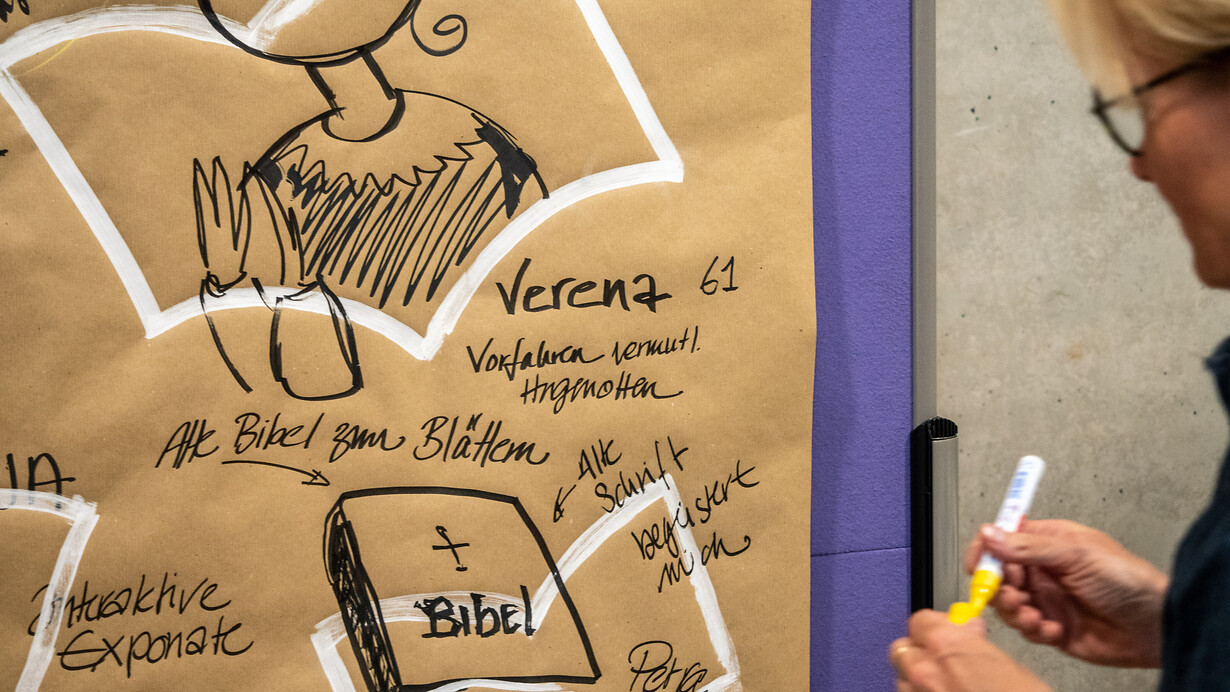 Verena 61
Vorfahren vermutl.
Hugenotten
Alte Bibel zum Blättern
Alte
Schrift
begeistert
mich
Bibel
Interaktive
Exponate
Petra